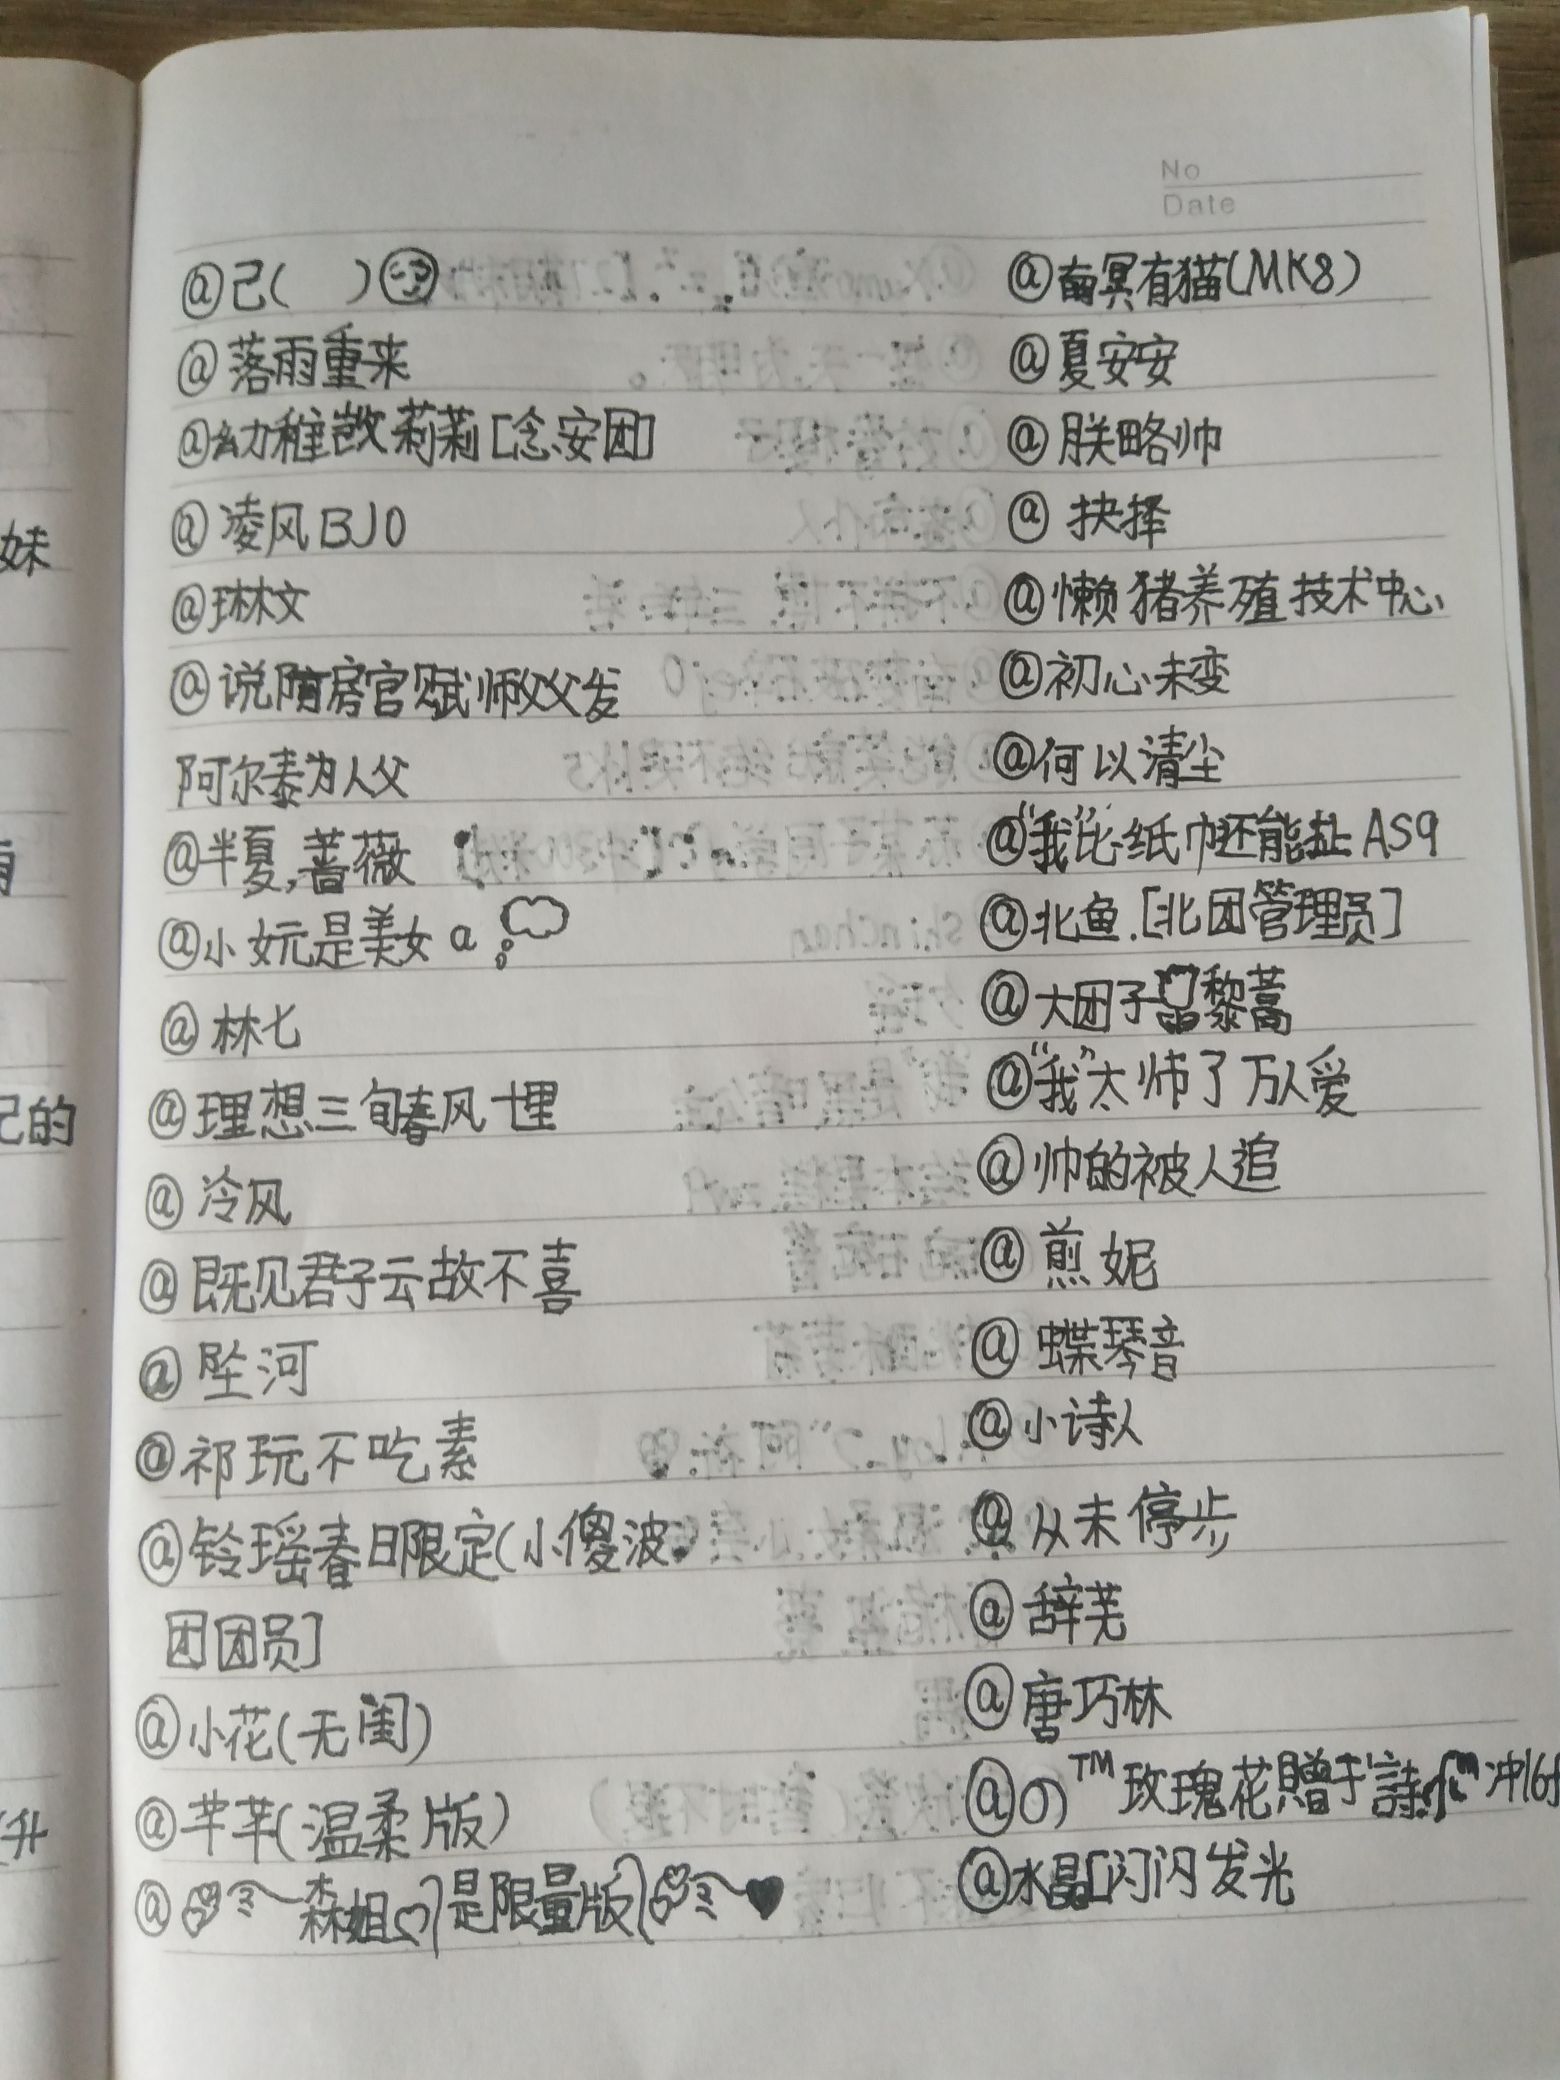 No
Date
@己(  )
@落雨重来
@幼稚敳莉莉[念安团]
@凌风BJO
@琳文
@说阿房官赋师父父发
阿尔泰为人父
@半夏,蔷薇
@小妧是美女a
@林七
@理想三旬春风十里
@冷风
@既见君子云故不喜
@坠河
@祁玩不吃素
@铃瑶春日限定(小傻波
团团员]
@小花(无闺)
@芊芊(温柔版)
@森姐♡是限量版♥
@南冥有猫(MK8)
@夏安安
@朕略帅
@抉择
@懒猪养殖技术中心
@初心未变
@何以清尘
@“我”比纸巾还能扯AS9
@北鱼.[北团管理员]
@大团子黎蒿
@“我”太师了万人爱
@帅的被人追
@煎妮
@蝶琴音
@小诗人
@从未停步
@辞芜
@唐巧林
@の™玫瑰花贈于詩冲16
@水晶闪闪发光
妹
记的
升